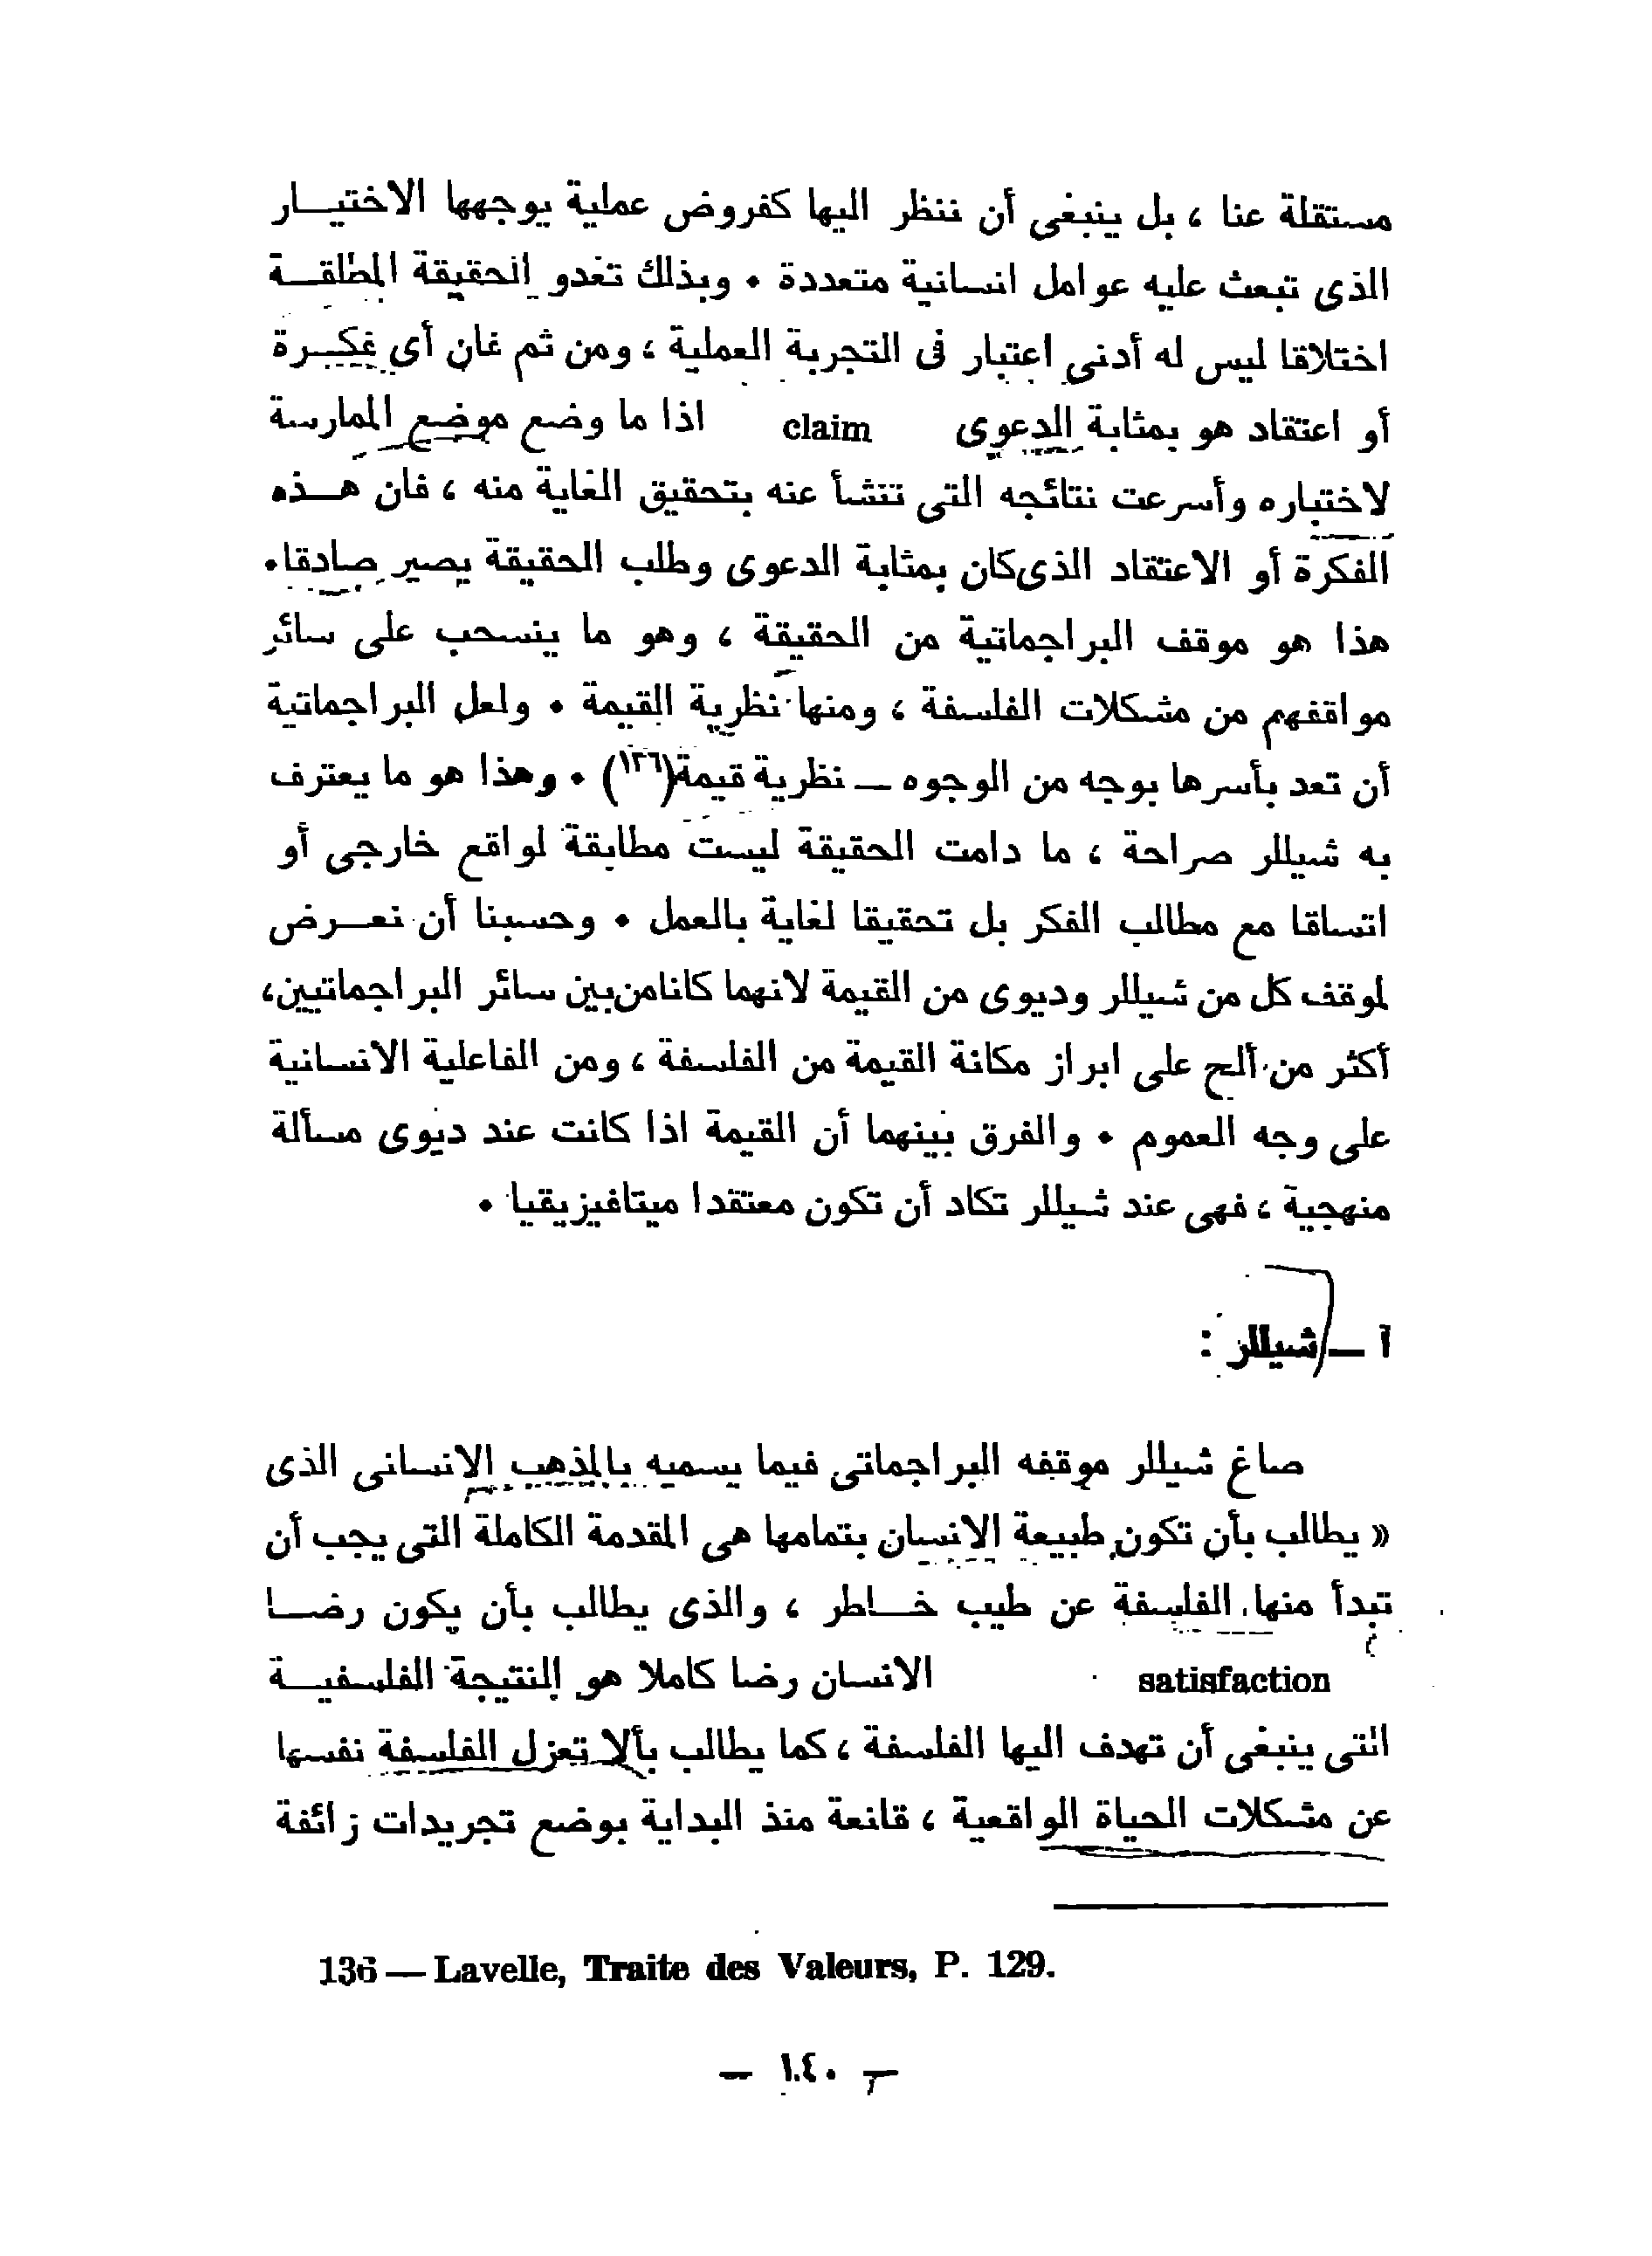 مستقلة عنا ، بل ينبغى أن ننظر اليها كفروض عملية يوجهها الاختيـــار
الذى تبعث عليه عوامل انسانية متعددة . وبذلك تغدو الحقيقة المطلقـــة
اختلاقا ليس له أدنى اعتبار فى التجربة العملية ، ومن ثم فان أى فكـــرة
أو اعتقاد هو بمثابة الدعوى claim اذا ما وضع موضع الممارسة
لاختباره وأسرعت نتائجه التى تنشأ عنه بتحقيق الغاية منه ، فان هـــذه
الفكرة أو الاعتقاد الذى كان بمثابة الدعوى وطلب الحقيقة يصير صادقا.
هذا هو موقف البراجماتية من الحقيقة ، وهو ما ينسحب على سائر
مواقفهم من مشكلات الفلسفة ، ومنها نظرية القيمة . ولعل البراجماتية
أن تعد بأسرها بوجه من الوجوه — نظرية قيمة(١٣٦) . وهذا هو ما يعترف
به شيللر صراحة ، ما دامت الحقيقة ليست مطابقة لواقع خارجى أو
اتساقا مع مطالب الفكر بل تحقيقا لغاية بالعمل . وحسبنا أن نعـــرض
لموقف كل من شيللر وديوى من القيمة لانهما كانا من بين سائر البراجماتيين،
أكثر من ألح على ابراز مكانة القيمة من الفلسفة ، ومن الفاعلية الانسانية
على وجه العموم . والفرق بينهما أن القيمة اذا كانت عند ديوى مسألة
منهجية ، فهى عند شيللر تكاد أن تكون معتقدا ميتافيزيقيا .
أ — شيللر :
صاغ شيللر موقفه البراجماتى فيما يسميه بالمذهب الانسانى الذى
« يطالب بأن تكون طبيعة الانسان بتمامها هى المقدمة الكاملة التى يجب أن
تبدأ منها الفلسفة عن طيب خـــاطر ، والذى يطالب بأن يكون رضـــا
satisfaction الانسان رضا كاملا هو النتيجة الفلسفيـــة
التى ينبغى أن تهدف اليها الفلسفة ، كما يطالب بألا تعزل الفلسفة نفسها
عن مشكلات الحياة الواقعية ، قانعة منذ البداية بوضع تجريدات زائفة
136 — Lavelle, Traite des Valeurs, P. 129.
— ١٤٠ —